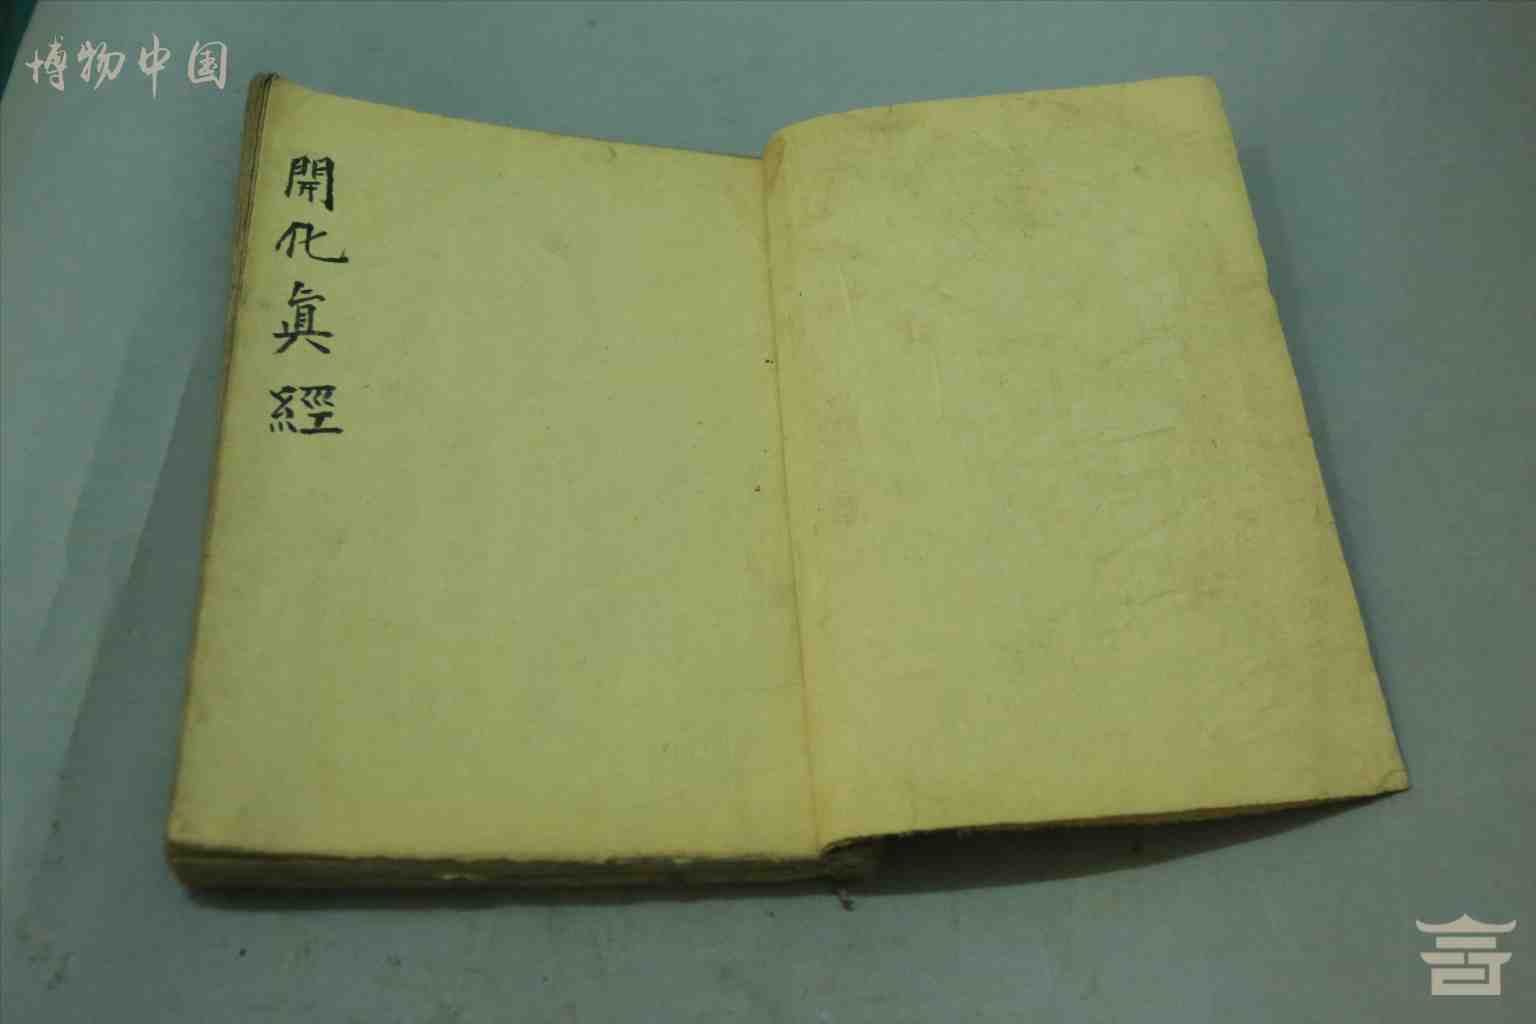 博物中国
開化眞經